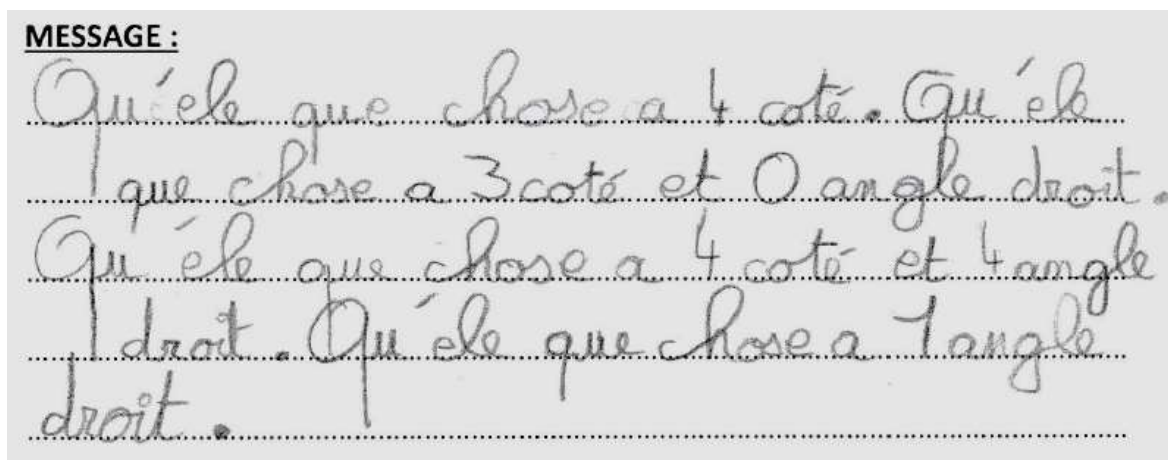 MESSAGE :
Qu'ele que chose a 4 coté. Qu'ele
que chose a 3 coté et 0 angle droit.
Qu'éle que chose a 4 coté et 4 angle
droit. Qu'ele que chose a 1 angle
droit.